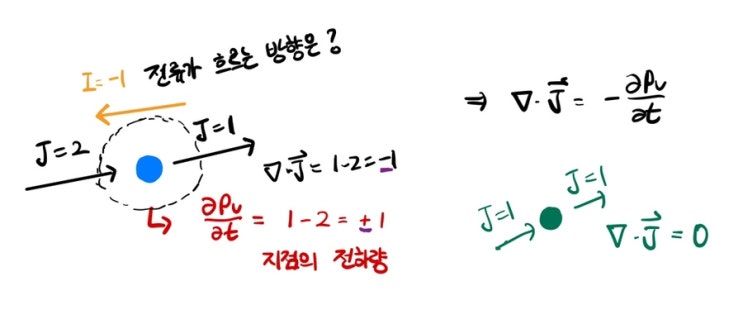 I=-1 전류가 흐르는 방향은?
J=2
J=1
∇·J⃗ = 1-2 = -1
∂ρv/∂t = 1-2 = ±1
지점의 전하량
⇒ ∇·J⃗ = -∂ρv/∂t
J=1
J=1
∇·J⃗ = 0